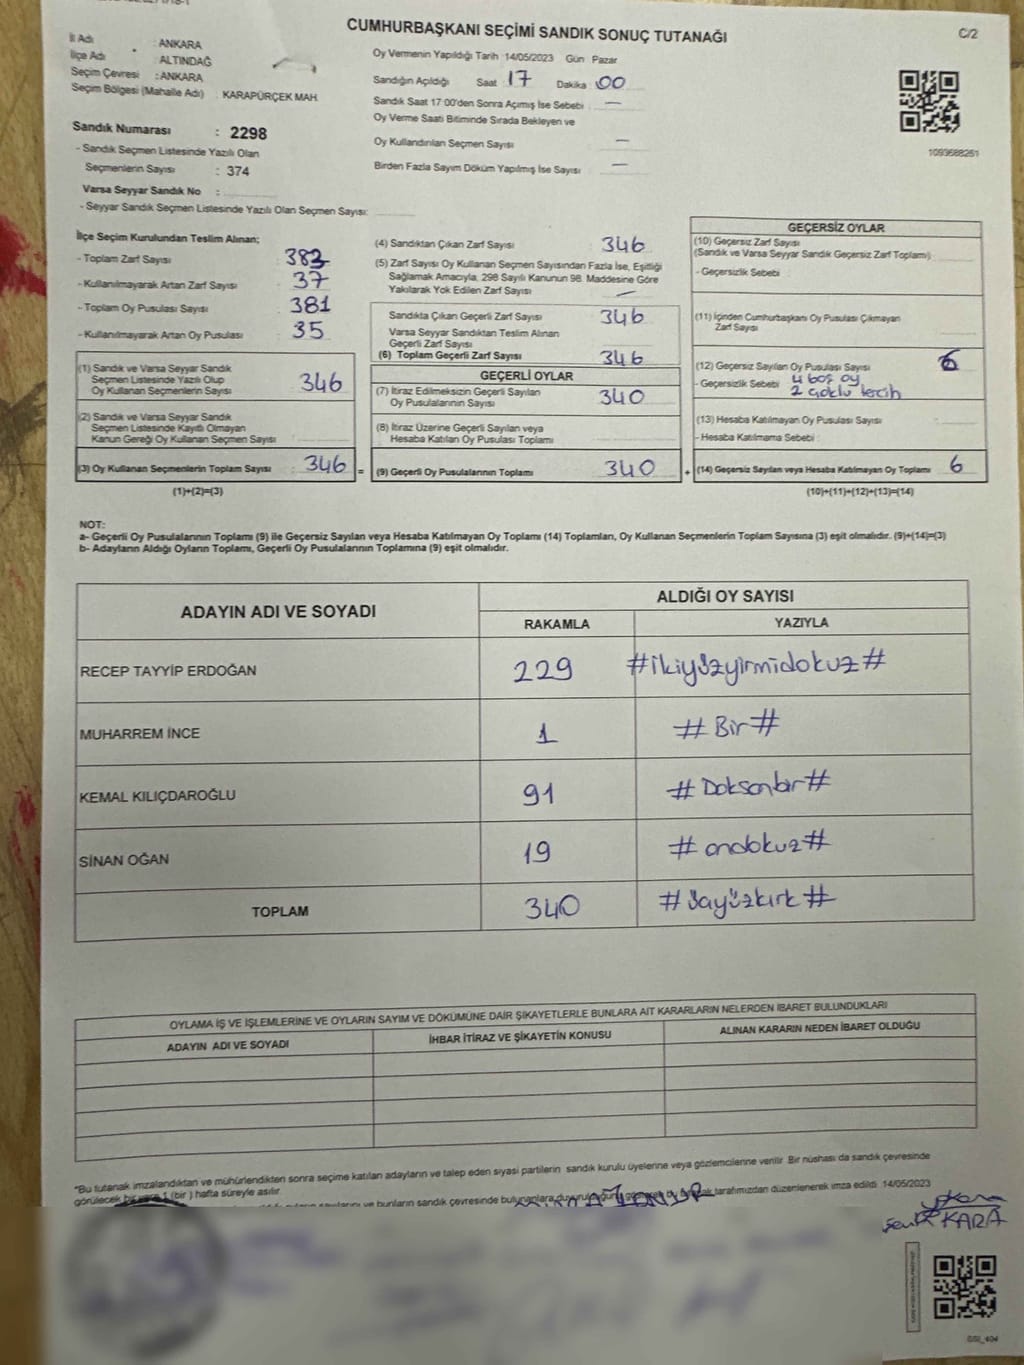 CUMHURBAŞKANI SEÇİMİ SANDIK SONUÇ TUTANAĞI
C/2
İl Adı : ANKARA
İlçe Adı : ALTINDAĞ
Seçim Çevresi : ANKARA
Seçim Bölgesi (Mahalle Adı) : KARAPÜRÇEK MAH.
Sandık Numarası : 2298
- Sandık Seçmen Listesinde Yazılı Olan
Seçmenlerin Sayısı : 374
Varsa Seyyar Sandık No :
- Seyyar Sandık Seçmen Listesinde Yazılı Olan Seçmen Sayısı:
Oy Vermenin Yapıldığı Tarih 14/05/2023 Gün Pazar
Sandığın Açıldığı Saat 17 Dakika 00
Sandık Saat 17:00'den Sonra Açımış İse Sebebi —
Oy Verme Saati Bitiminde Sırada Bekleyen ve
Oy Kullandırılan Seçmen Sayısı —
Birden Fazla Sayım Döküm Yapılmış İse Sayısı —
1093688251
İlçe Seçim Kurulundan Teslim Alınan;
- Toplam Zarf Sayısı 383
- Kullanılmayarak Artan Zarf Sayısı 37
- Toplam Oy Pusulası Sayısı 381
- Kullanılmayarak Artan Oy Pusulası 35
(1) Sandık ve Varsa Seyyar Sandık
Seçmen Listesinde Yazılı Olup
Oy Kullanan Seçmenlerin Sayısı 346
(2) Sandık ve Varsa Seyyar Sandık
Seçmen Listesinde Kayıtlı Olmayan
Kanun Gereği Oy Kullanan Seçmen Sayısı
(3) Oy Kullanan Seçmenlerin Toplam Sayısı : 346 =
(1)+(2)=(3)
(4) Sandıktan Çıkan Zarf Sayısı 346
(5) Zarf Sayısı Oy Kullanan Seçmen Sayısından Fazla İse, Eşitliği
Sağlamak Amacıyla, 298 Sayılı Kanunun 98. Maddesine Göre
Yakılarak Yok Edilen Zarf Sayısı —
Sandıkta Çıkan Geçerli Zarf Sayısı 346
Varsa Seyyar Sandıktan Teslim Alınan
Geçerli Zarf Sayısı
(6) Toplam Geçerli Zarf Sayısı 346
GEÇERLİ OYLAR
(7) İtiraz Edilmeksizin Geçerli Sayılan
Oy Pusulalarının Sayısı 340
(8) İtiraz Üzerine Geçerli Sayılan veya
Hesaba Katılan Oy Pusulası Toplamı
(9) Geçerli Oy Pusulalarının Toplamı 340 +
GEÇERSİZ OYLAR
(10) Geçersiz Zarf Sayısı
(Sandık ve Varsa Seyyar Sandık Geçersiz Zarf Toplamı)
- Geçersizlik Sebebi :
(11) İçinden Cumhurbaşkanı Oy Pusulası Çıkmayan
Zarf Sayısı
(12) Geçersiz Sayılan Oy Pusulası Sayısı 6
- Geçersizlik Sebebi : 4 boş oy
2 çoklu tercih
(13) Hesaba Katılmayan Oy Pusulası Sayısı
- Hesaba Katılmama Sebebi :
(14) Geçersiz Sayılan veya Hesaba Katılmayan Oy Toplamı 6
(10)+(11)+(12)+(13)=(14)
NOT:
a- Geçerli Oy Pusulalarının Toplamı (9) ile Geçersiz Sayılan veya Hesaba Katılmayan Oy Toplamı (14) Toplamları, Oy Kullanan Seçmenlerin Toplam Sayısına (3) eşit olmalıdır. (9)+(14)=(3)
b- Adayların Aldığı Oyların Toplamı, Geçerli Oy Pusulalarının Toplamına (9) eşit olmalıdır.
ADAYIN ADI VE SOYADI
ALDIĞI OY SAYISI
RAKAMLA YAZIYLA
RECEP TAYYİP ERDOĞAN 229 #ikiyüzyirmidokuz#
MUHARREM İNCE 1 #Bir#
KEMAL KILIÇDAROĞLU 91 #Doksanbir#
SİNAN OĞAN 19 #ondokuz#
TOPLAM 340 #üçyüzkırk#
OYLAMA İŞ VE İŞLEMLERİNE VE OYLARIN SAYIM VE DÖKÜMÜNE DAİR ŞİKAYETLERLE BUNLARA AİT KARARLARIN NELERDEN İBARET BULUNDUKLARI
ADAYIN ADI VE SOYADI İHBAR İTİRAZ VE ŞİKAYETİN KONUSU ALINAN KARARIN NEDEN İBARET OLDUĞU
"Bu tutanak imzalandıktan ve mühürlendikten sonra seçime katılan adayların ve talep eden siyasi partilerin sandık kurulu üyelerine veya gözlemcilerine verilir. Bir nüshası da sandık çevresinde
görülecek bir yere 1 (bir ) hafta süreyle asılır.
ve bunların sandık çevresinde bulunanlara tarafımızdan düzenlenerek imza edildi. 14/05/2023
KARA